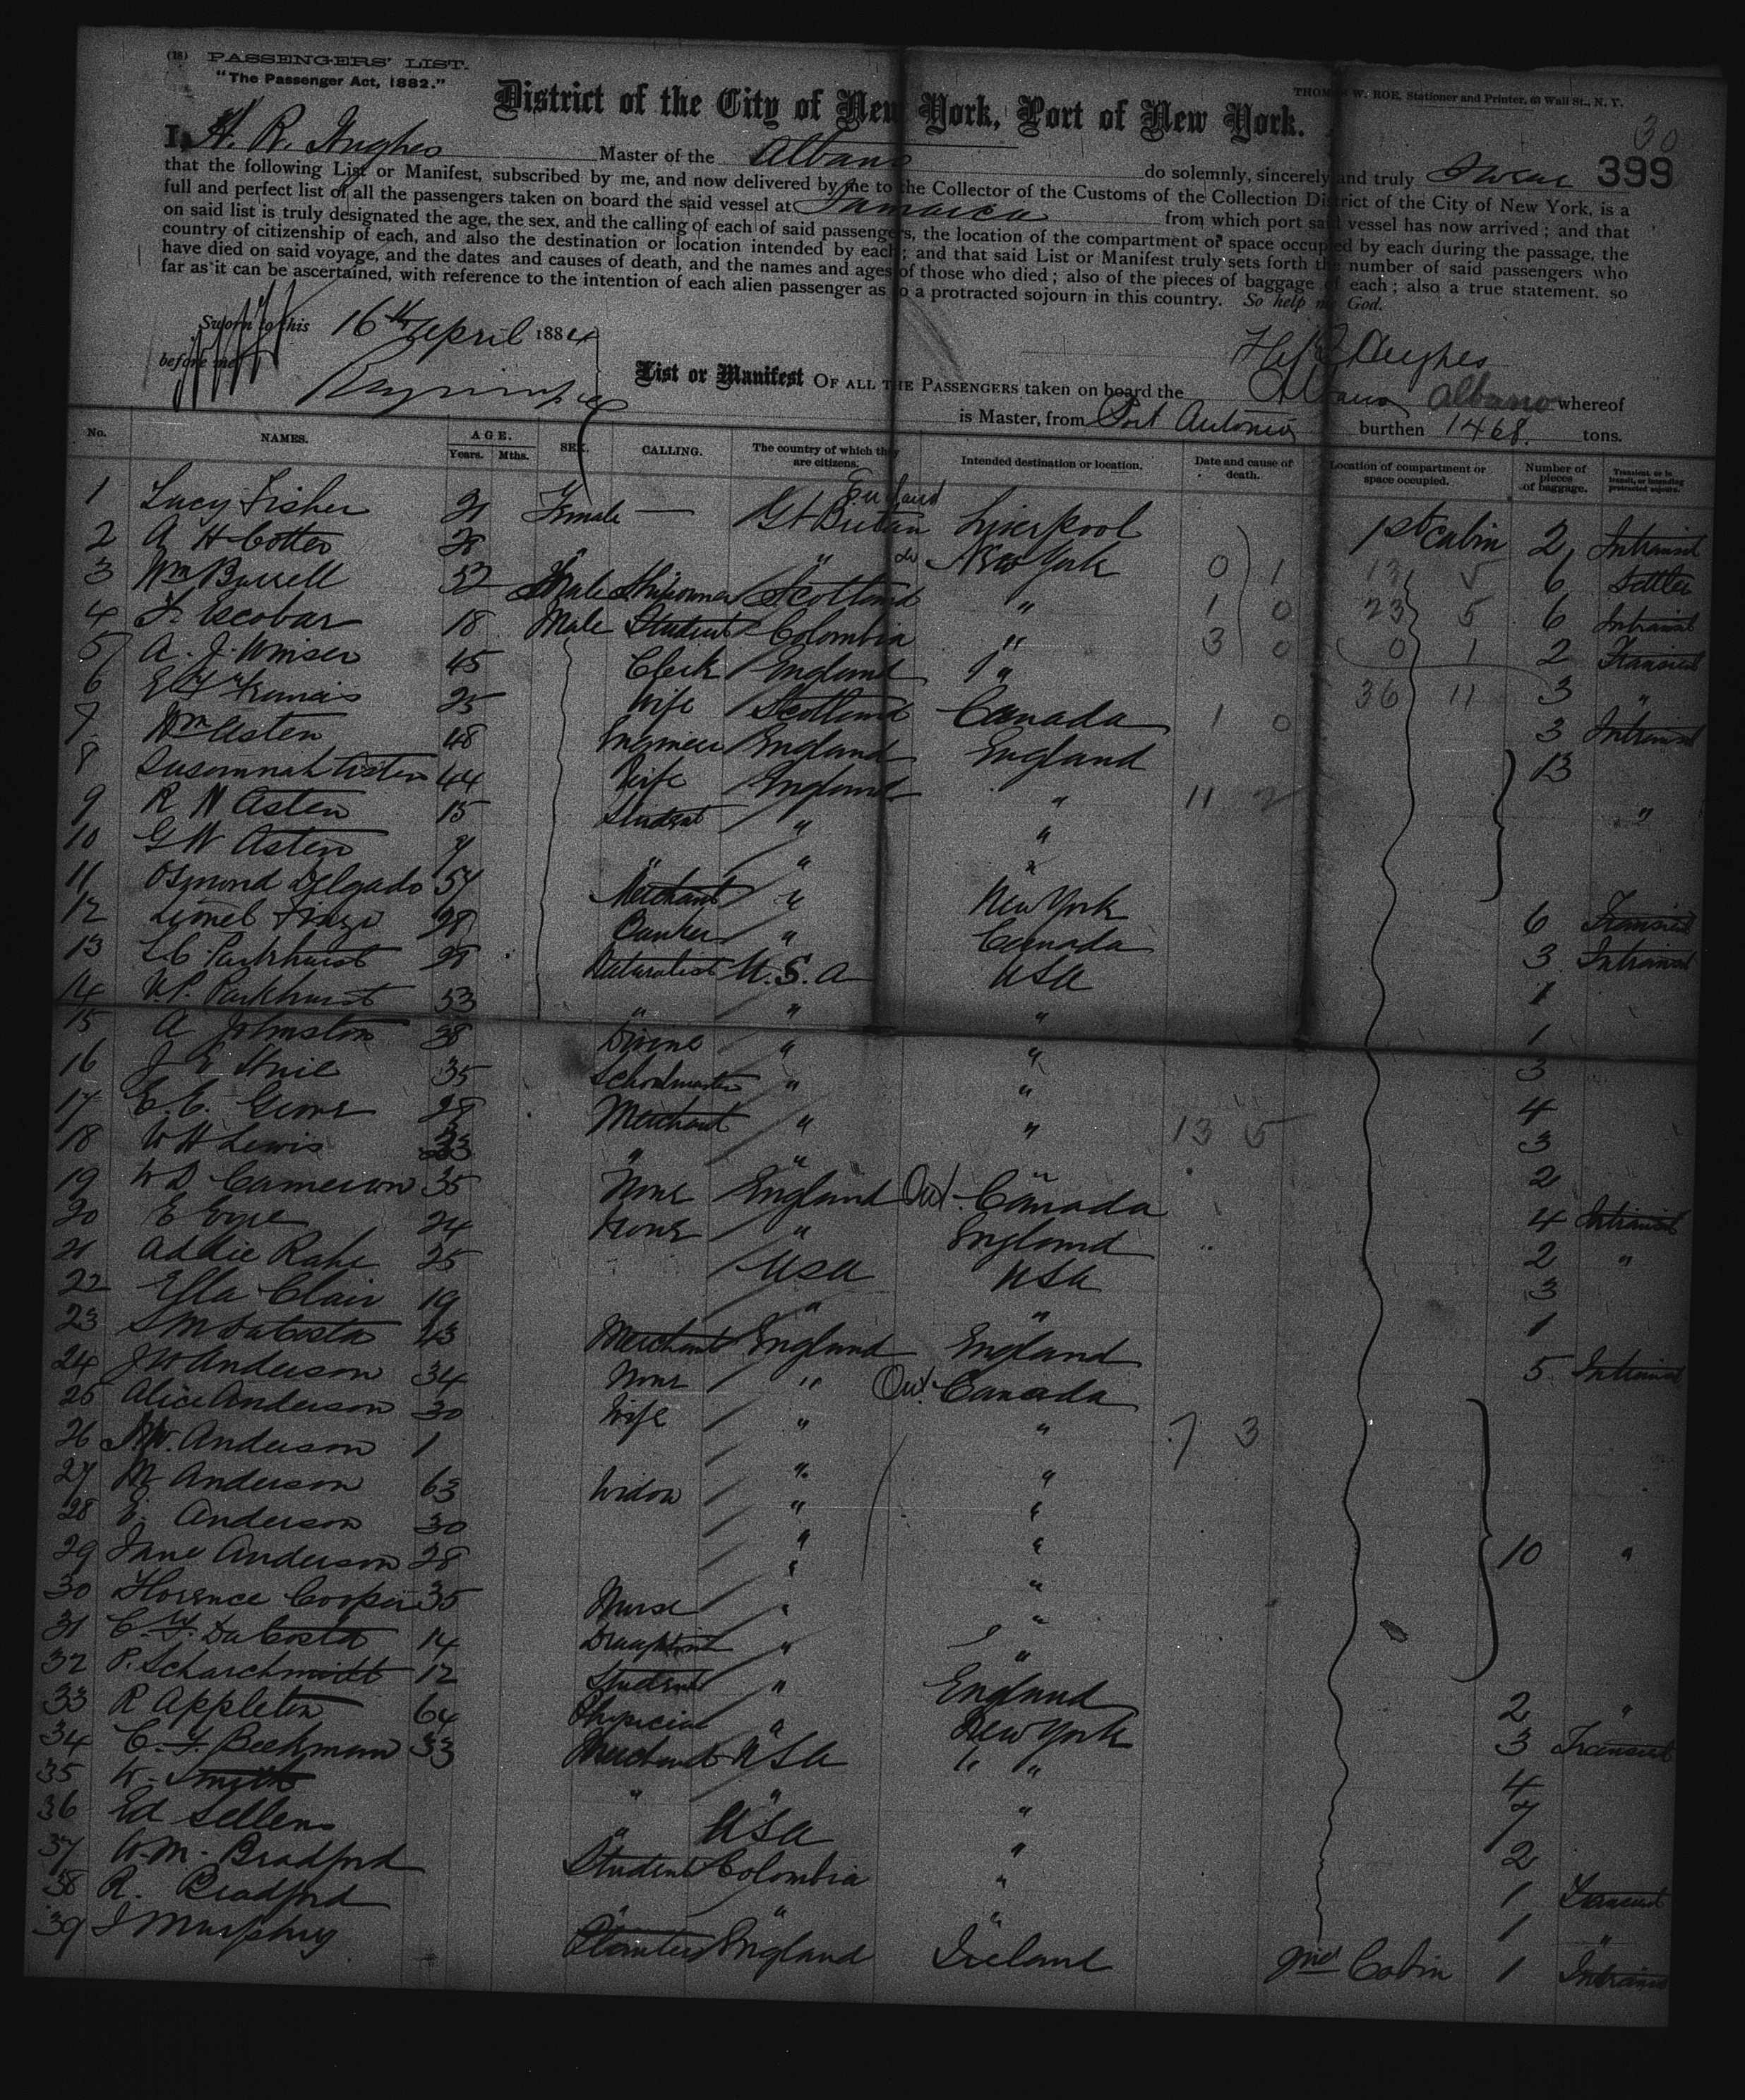 (18) PASSENGERS' LIST.
"The Passenger Act, 1882."
THOMAS W. ROE, Stationer and Printer, Wall St., N. Y.
District of the City of New York, Port of New York.
30
399
I, H. R. Hughes Master of the Albano do solemnly, sincerely and truly Swear
that the following List or Manifest, subscribed by me, and now delivered by me to the Collector of the Customs of the Collection District of the City of New York, is a
full and perfect list of all the passengers taken on board the said vessel at Jamaica from which port said vessel has now arrived; and that
on said list is truly designated the age, the sex, and the calling of each of said passengers, the location of the compartment or space occupied by each during the passage, the
country of citizenship of each, and also the destination or location intended by each; and that said List or Manifest truly sets forth the number of said passengers who
have died on said voyage, and the dates and causes of death, and the names and ages of those who died; also of the pieces of baggage of each; also a true statement, so
far as it can be ascertained, with reference to the intention of each alien passenger as to a protracted sojourn in this country. So help me God.
Sworn to this 16th April 1884
before me
H R Hughes
List or Manifest OF ALL THE PASSENGERS taken on board the Albano Albano whereof
is Master, from Port Antonio burthen 1468 tons.
No. NAMES. AGE. Years. Mths. SEX. CALLING. The country of which they are citizens. Intended destination or location. Date and cause of death. Location of compartment or space occupied. Number of pieces of baggage. Transient, or in transit, or intending protracted sojourn.
1 Lucy Fisher 21 Female — Gt Britain England Liverpool 1st Cabin 2 Intransit
2 A H Cotter 28 " " do New York 6 Settler
3 Wm Burrell 52 Male Shipowner Scotland " 6 Intransit
4 F. Escobar 18 Male Student Colombia " 2 Transient
5 A. J. Winser 45 Clerk England " 3 "
6 E F Francis 25 Wife Scotland Canada 3 Intransit
7 Wm Asten 48 Engineer England England 13
8 Susannah Asten 44 Wife England "
9 R N Asten 15 Student " " "
10 G W Asten 9 " " "
11 Osmond Delgado 54 Merchant " New York 6 Transient
12 Lionel 28 Banker " Canada 3 Intransit
13 Parkhurst 29 Naturalist U.S.A USA 1
14 V.P. Parkhurst 53 " " " 1
15 A Johnston 38 Divine " " 3
16 J E 35 Schoolmaster " " 4
17 E. C. 28 Merchant " " 3
18 W H Lewis 33 " " " 2
19 W D Cameron 35 None England Ont. Canada 4 Intransit
20 E 24 None " England 2 "
21 Addie Rahe 25 USA USA 3
22 Ella Clair 19 " " 1
23 S M DaCosta 43 Merchant England England 5 Intransit
24 J W Anderson 34 None " Ont. Canada
25 Alice Anderson 30 Wife " "
26 W. Anderson 1 " "
27 M Anderson 63 Widow " "
28 E. Anderson 30 " "
29 Jane Anderson 28 " " 10 "
30 Florence Cooper 35 Nurse " "
31 C. F. DaCosta 14 " "
32 P. Scharchmidt 12 Student " England 2 "
33 R Appleton 64 Physician " New York 3 Transient
34 C. F. Beekman 33 Merchant USA " " 4
35 W. Smith " " " 7
36 Ed Sellen " USA " 2
37 W. M. Bradford Student Colombia " 1 Transient
38 R. Bradford " " " 1 "
39 J Murphy Planter England Ireland 2nd Cabin 1 Intransit